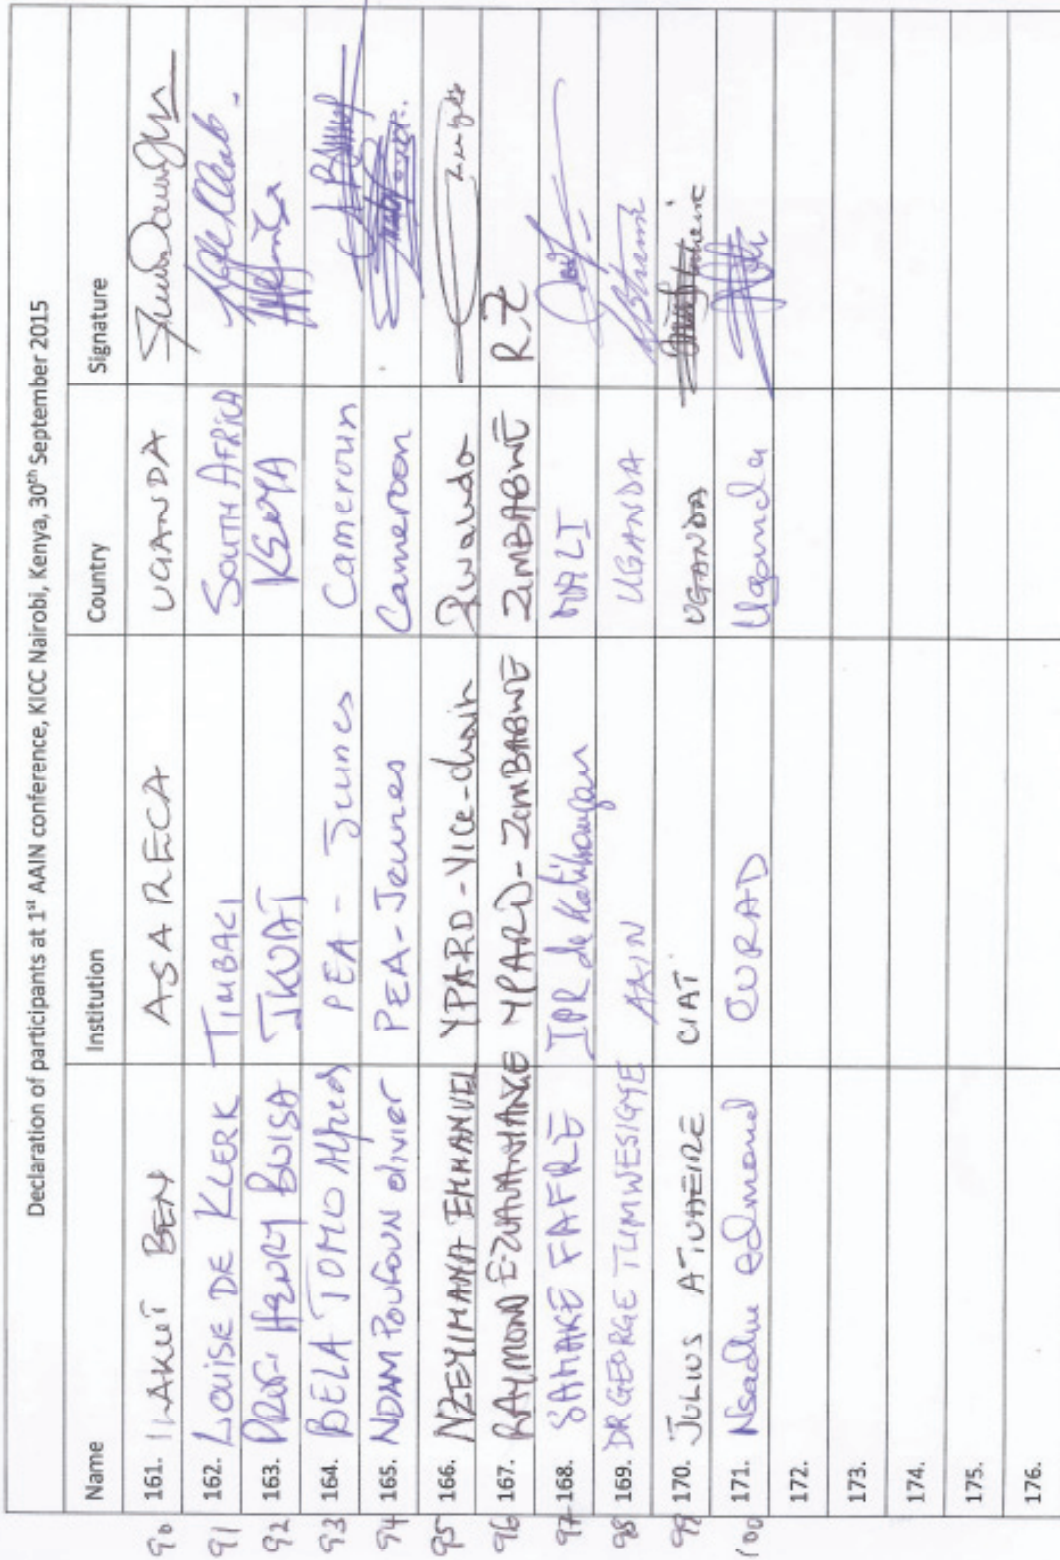 Declaration of participants at 1st AAIN conference, KICC Nairobi, Kenya, 30th September 2015
Name Institution Country Signature
90 161. ILAKUT BEN ASARECA UGANDA
91 162. LOUISE DE KLERK TIMBALI SOUTH AFRICA
92 163. PROF. HENRY BWISA JKUAT KENYA
93 164. BELA TOMO Alfred PEA - Jeunes Cameroun
94 165. NDAM POUFOUN olivier PEA-Jeunes Cameroon
95 166. NZEYIMANA EMMANUEL YPARD-Vice-chair Rwanda
96 167. RAYMOND E-ZUVANHANGE YPARD-ZIMBABWE ZIMBABWE R.Z
97 168. SAMAKE FAFRE IPR de Katibougou MALI
98 169. DR GEORGE TUMWESIGYE AAIN UGANDA
99 170. JULIUS ATUHEIRE CIAT UGANDA
100 171. Nsadhu Edmond CURAD Uganda
172.
173.
174.
175.
176.